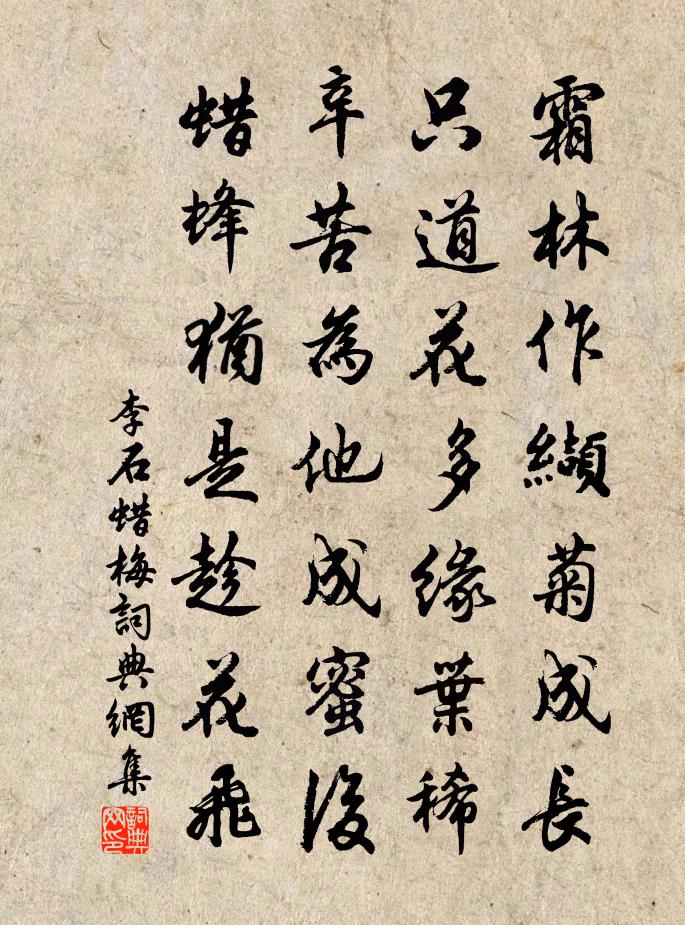 霜林作纈菊成長
只道花多緣葉稀
辛苦為他成蜜後
蜡蜂猶是趁花飛
李石蜡梅詞典網集
詞典网印